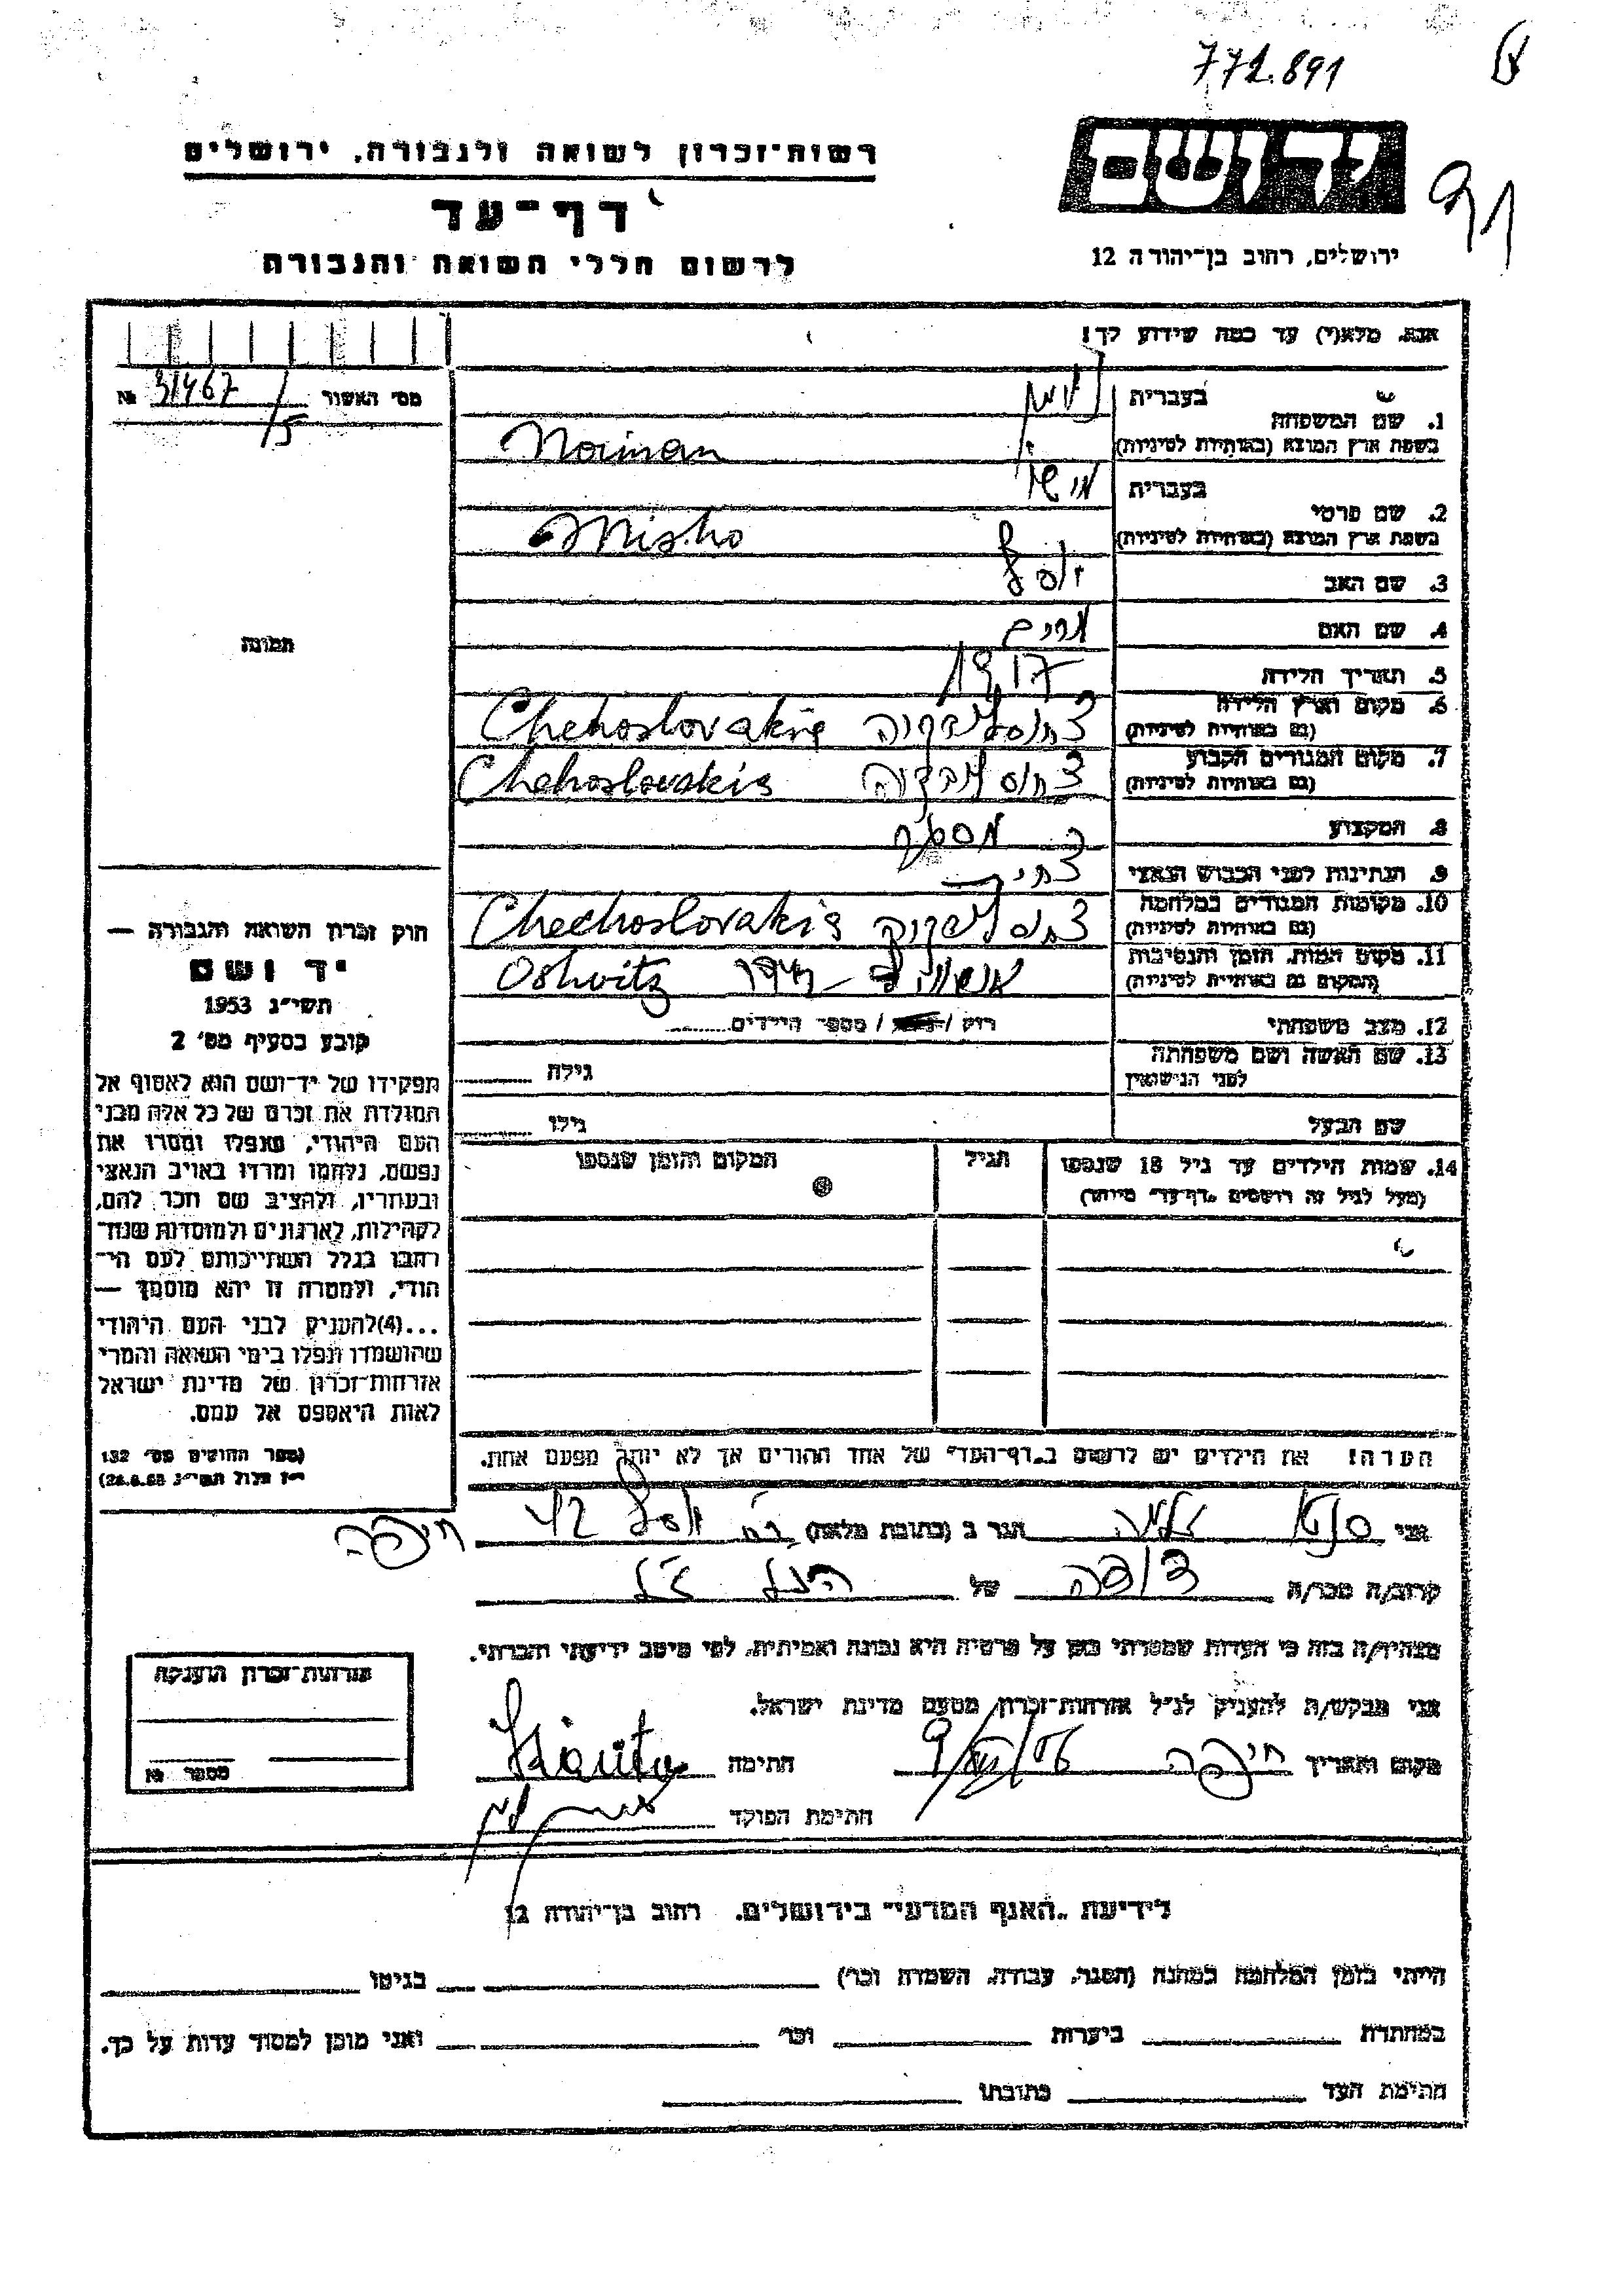 772.891
יד ושם
91
רשות־זכרון לשואה ולגבורה, ירושלים
דף־עד
לרשום חללי השואה והגבורה
ירושלים, רחוב בן־יהודה 12
אנא, מלא(י) עד כמה שידוע לך!
מס' האשור 31467/5 №
1. שם המשפחה בעברית
בשפת ארץ המוצא (באותיות לטיניות) Noiman
2. שם פרטי בעברית
בשפת ארץ המוצא (באותיות לטיניות) Misho
3. שם האב יוסף
4. שם האם מרים
5. תאריך הלידה 1917
6. מקום וארץ הלידה צכוסלובקיה Chehoslovakia
(גם באותיות לטיניות)
7. מקום המגורים הקבוע צכוסלובקיה Chehoslovakia
(גם באותיות לטיניות)
8. המקצוע
9. הנתינות לפני הכבוש הנאצי
10. מקומות המגורים במלחמה צכוסלובקיה Chechoslovakia
(גם באותיות לטיניות)
11. מקום המות, הזמן והנסיבות אושוויץ Oshvitz
(המקום גם באותיות לטיניות)
12. מצב משפחתי רוק / נשוי / מספר הילדים
13. שם האשה ושם משפחתה גילה
לפני הנישואין
שם הבעל גילו
14. שמות הילדים עד גיל 18 שנספו הגיל המקום והזמן שנספו
(מעל לגיל זה רושמים "דף־עד" מיוחד)
הערה! את הילדים יש לרשום ב"דף־העד" של אחד ההורים אך לא יותר מפעם אחת.
תמונה
חוק זכרון השואה והגבורה —
יד ושם
תשי"ג 1953
קובע בסעיף מס' 2
תפקידו של יד־ושם הוא לאסוף אל
המולדת את זכרם של כל אלה מבני
העם היהודי, שנפלו ומסרו את
נפשם, נלחמו ומרדו באויב הנאצי
ובעוזריו, ולהציב שם וזכר להם,
לקהילות, לארגונים ולמוסדות שנח־
רבו בגלל השתייכותם לעם הי־
הודי, ולמטרה זו יהא מוסמך —
...(4)להעניק לבני העם היהודי
שהושמדו ונפלו בימי השואה והמרי
אזרחות־זכרון של מדינת ישראל
לאות היאספם אל עמם.
(ספר החוקים מס' 132
י"ז אלול תשי"ג 28.8.53)
אני הגר ב (כתובת מלאה) יוסף 42 חיפה
קרוב/ה מכר/ה של הנ"ל
מצהיר/ה בזה כי העדות שמסרתי כאן על פרטיה היא נכונה ואמיתית, לפי מיטב ידיעתי והכרתי.
אני מבקש/ת להעניק לנ"ל אזרחות־זכרון מטעם מדינת ישראל.
מקום ותאריך חיפה חתימה
חתימת הפוקד
אזרחות־זכרון הוענקה
מספר №
לידיעת "האגף המדעי" בירושלים, רחוב בן־יהודה 12
הייתי בזמן המלחמה במחנה (הסגר, עבודה, השמדה וכו') בגיטו
במחתרת ביערות וכו' ואני מוכן למסור עדות על כך.
חתימת העד כתובתו